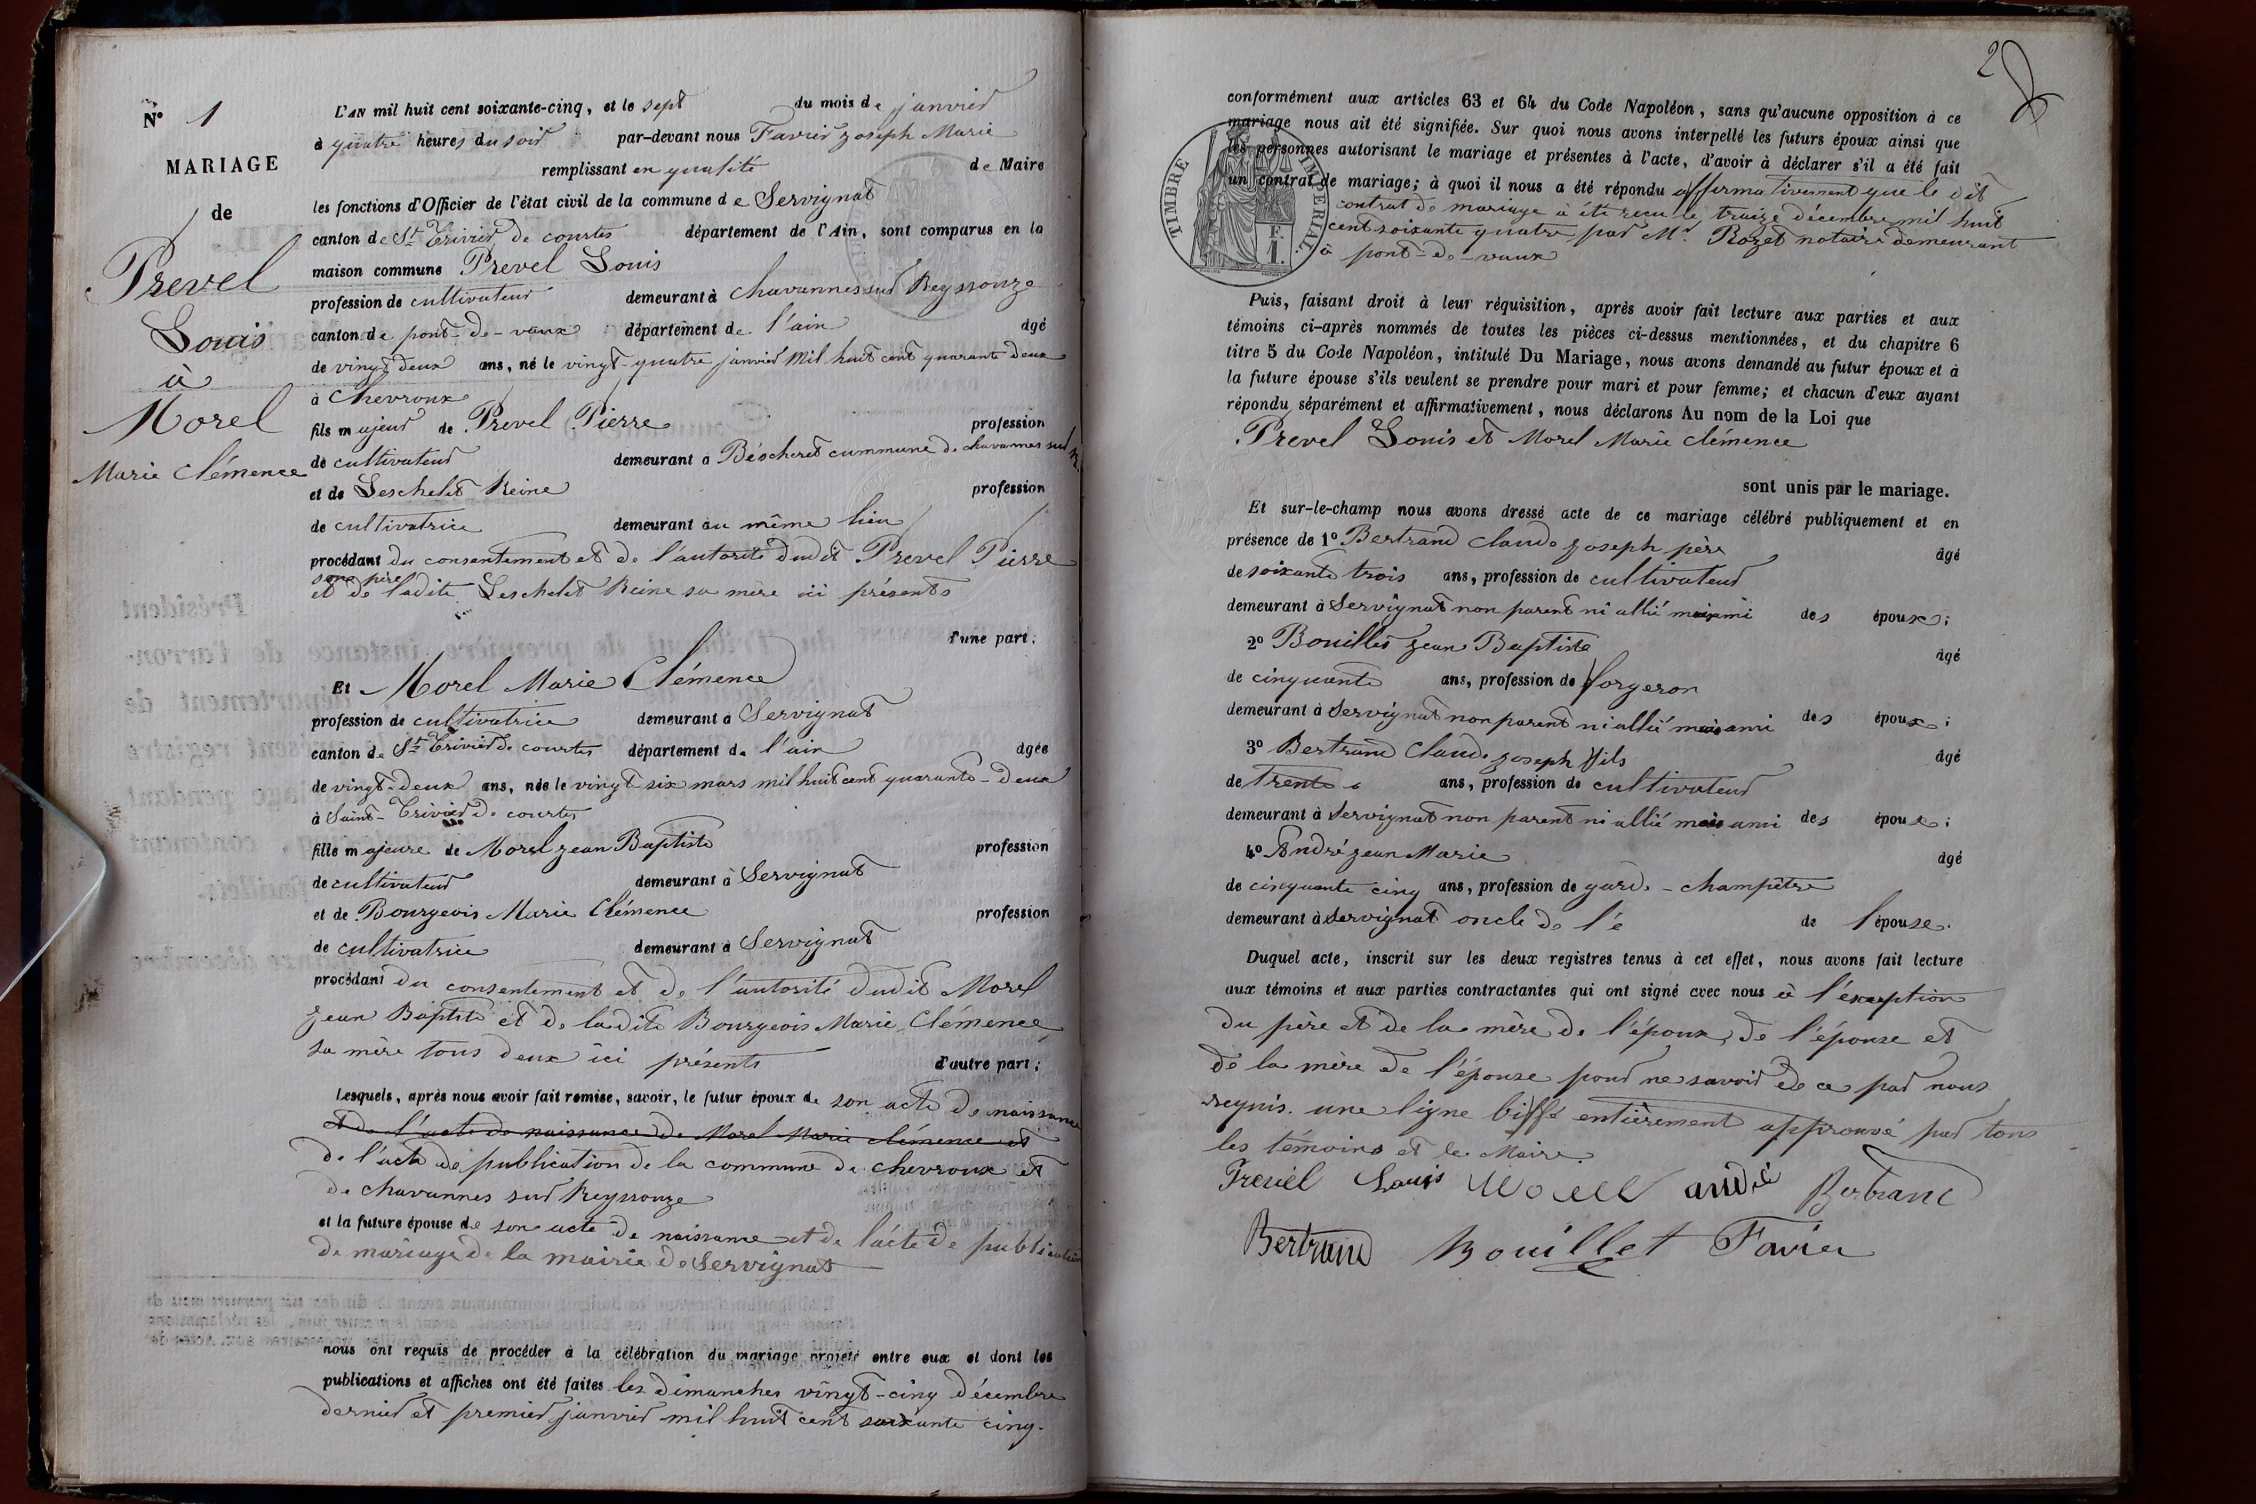 N° 1
MARIAGE
de
Prevel
Louis
à
Morel
Marie Clémence
L'AN mil huit cent soixante-cinq, et le sept du mois de janvier
à quatre heures du soir par-devant nous Favier Joseph Marie
remplissant en qualité de Maire
les fonctions d'Officier de l'état civil de la commune de Servignat
canton de St Trivier de courtes département de l'Ain, sont comparus en la
maison commune Prevel Louis
profession de cultivateur demeurant à Chavannes sur Reyssouze
canton de pont-de-vaux département de l'ain âgé
de vingt deux ans, né le vingt-quatre janvier mil huit cent quarante deux
à Chevroux
fils majeur de Prevel Pierre profession
de cultivateur demeurant à Béscheret cummune de chavannes sur R.
et de Leschelet Reine profession
de cultivatrice demeurant au même lieu
procédant du consentement et de l'autorité dudit Prevel Pierre
son père
et de ladite Leschelet Reine sa mère ici présents
d'une part;
Et Morel Marie Clémence
profession de cultivatrice demeurant à Servignat
canton de St Trivier de courtes département de l'ain âgée
de vingt-deux ans, née le vingt six mars mil huit cent quarante-deux
à Saint-Trivier de courtes
fille majeure de Morel jean Baptiste profession
de cultivateur demeurant à Servignat
et de Bourgeois Marie Clémence profession
de cultivatrice demeurant à Servignat
procédant du consentement et de l'autorité dudit Morel
jean Baptiste et de ladite Bourgeois Marie Clémence
sa mère tous deux ici présents d'autre part;
Lesquels, après nous avoir fait remise, savoir, le futur époux de son acte de naissance
et de l'acte de naissance de Morel Marie clémence et
de l'acte de publication de la commune de chevroux et
de chavannes sur Reyssouze
et la future épouse de son acte de naissance et de l'acte de publication
de mariage de la mairie de Servignat
nous ont requis de procéder à la célébration du mariage projeté entre eux et dont les
publications et affiches ont été faites les dimanches vingt-cinq décembre
dernier et premier janvier mil huit cent soixante cinq.
2
conformément aux articles 63 et 64 du Code Napoléon, sans qu'aucune opposition à ce
mariage nous ait été signifiée. Sur quoi nous avons interpellé les futurs époux ainsi que
les personnes autorisant le mariage et présentes à l'acte, d'avoir à déclarer s'il a été fait
un contrat de mariage; à quoi il nous a été répondu affirmativement que le dit
contrat de mariage à été recu le traize décembre mil huit
cent soixante quatre par Me Rozet notaire demeurant
à pont-de-vaux
TIMBRE IMPERIAL
1 F.
Puis, faisant droit à leur réquisition, après avoir fait lecture aux parties et aux
témoins ci-après nommés de toutes les pièces ci-dessus mentionnées, et du chapitre 6
titre 5 du Code Napoléon, intitulé Du Mariage, nous avons demandé au futur époux et à
la future épouse s'ils veulent se prendre pour mari et pour femme; et chacun d'eux ayant
répondu séparément et affirmativement, nous déclarons Au nom de la Loi que
Prevel Louis et Morel Marie clémence
sont unis par le mariage.
Et sur-le-champ nous avons dressé acte de ce mariage célébré publiquement et en
présence de 1° Bertrand Claude Joseph père âgé
de soixante trois ans, profession de cultivateur
demeurant à Servignat non parent ni allié mais ami des époux;
2° Bouillet Jean Baptiste âgé
de cinquante ans, profession de forgeron
demeurant à Servignat non parent ni allié mais ami des époux;
3° Bertrand Claude Joseph fils âgé
de trente ans, profession de cultivateur
demeurant à Servignat non parent ni allié mais ami des époux;
4° André jean Marie âgé
de cinquante cinq ans, profession de garde-champêtre
demeurant à Servignat oncle de l'é de l'épouse.
Duquel acte, inscrit sur les deux registres tenus à cet effet, nous avons fait lecture
aux témoins et aux parties contractantes qui ont signé avec nous à l'éxception
du père et de la mère de l'époux, de l'épouse et
de la mère de l'épouse pour ne savoir de ce par nous
requis. une ligne biffé entièrement approuvé par tous
les témoins et le Maire.
Prevel Louis Morel andré Bertrand
Bertrand Bouillet Favier